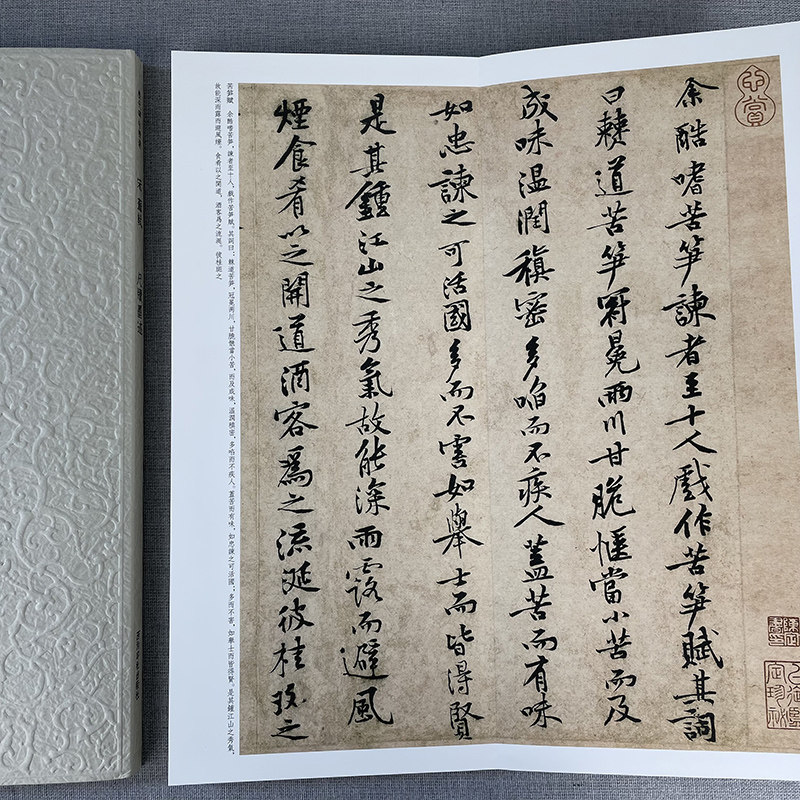 余酷嗜苦笋諫者至十人戲作苦笋賦其詞
曰僰道苦笋冠冕兩川甘脆愜當小苦而及
成味温潤稹密多啗而不疾人蓋苦而有味
如忠諫之可活國多而不害如舉士而皆得賢
是其鍾江山之秀氣故能深雨露而避風
煙食肴以之開道酒客爲之流涎彼桂玫之
苦笋賦 余酷嗜苦笋，諫者至十人，戲作苦笋賦。其詞曰：僰道苦笋，冠冕兩川，甘脆愜當小苦，而及成味，温潤稹密，多啗而不疾人。蓋苦而有味，如忠諫之可活國；多而不害，如舉士而皆得賢。是其鍾江山之秀氣，
故能深雨露而避風煙。食肴以之開道，酒客爲之流涎。彼桂玫之